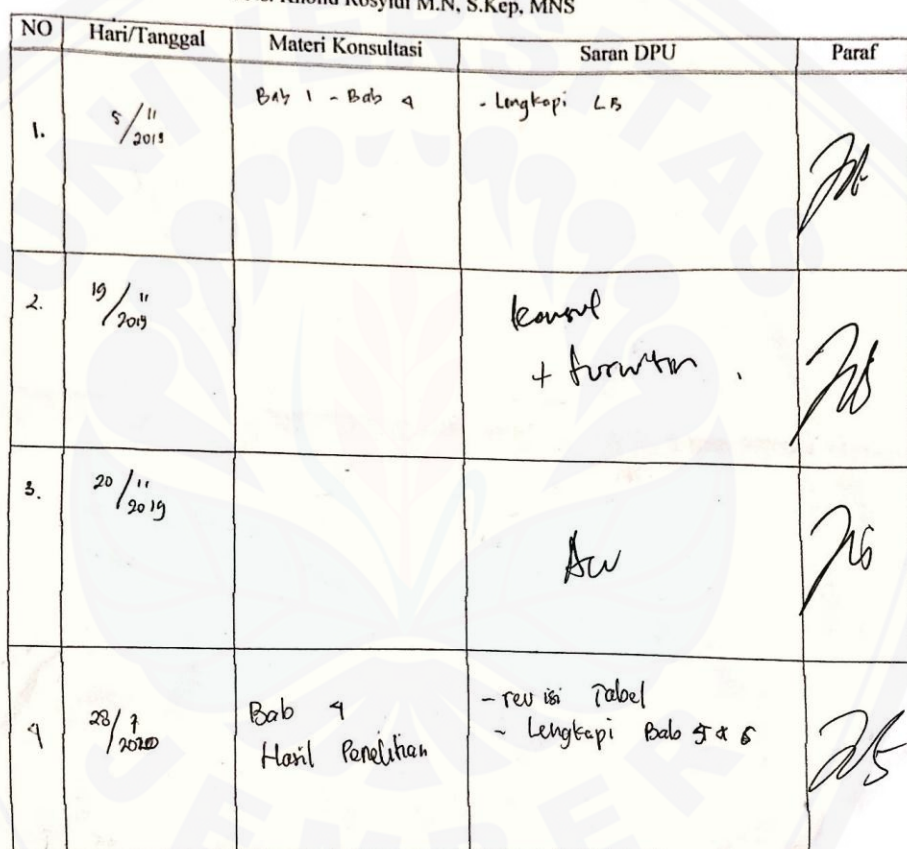 Rosyidi M.N, S.Kep, MNS
NO Hari/Tanggal Materi Konsultasi Saran DPU Paraf
1. 5/11 2019 Bab 1 - Bab 4 - Lengkapi LB
2. 19/11 2019 konsul
+
3. 20/11 2019
Acc
4 28/7 2020 Bab 4 - revisi Tabel
Hasil Penelitian - Lengkapi Bab 5 & 6
UNIVERSITAS
JEMBER